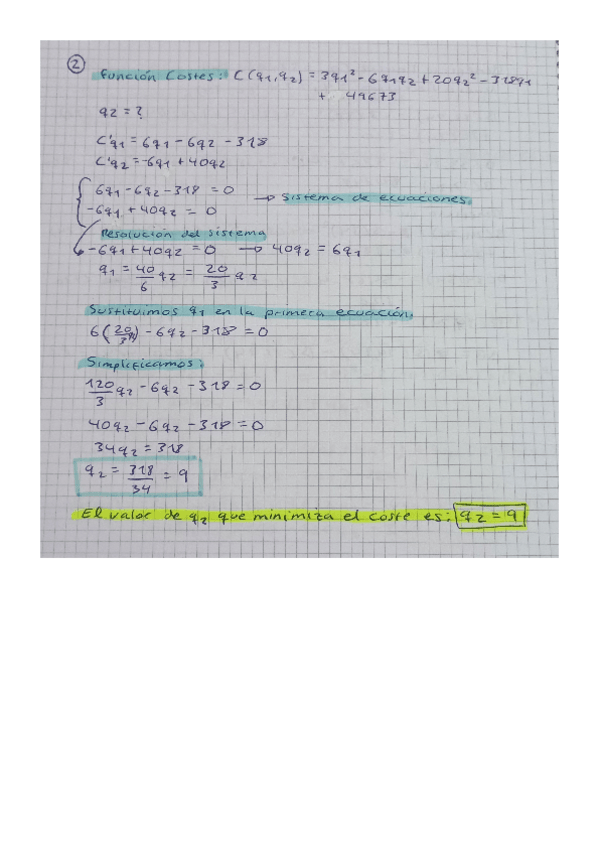 2
Función Costes: C(q1,q2) = 3q1² - 6q1q2 + 20q2² - 318q1
+ 49673
q2 = ?
C'q1 = 6q1 - 6q2 - 318
C'q2 = -6q1 + 40q2
6q1 - 6q2 - 318 = 0
-6q1 + 40q2 = 0 → Sistema de ecuaciones.
Resolución del sistema
-6q1 + 40q2 = 0 → 40q2 = 6q1
q1 = 40/6 q2 = 20/3 q2
Sustituimos q1 en la primera ecuación.
6(20/3 q2) - 6q2 - 318 = 0
Simplificamos:
120/3 q2 - 6q2 - 318 = 0
40q2 - 6q2 - 318 = 0
34q2 = 318
q2 = 318/34 = 9
El valor de q2 que minimiza el coste es: q2 = 9